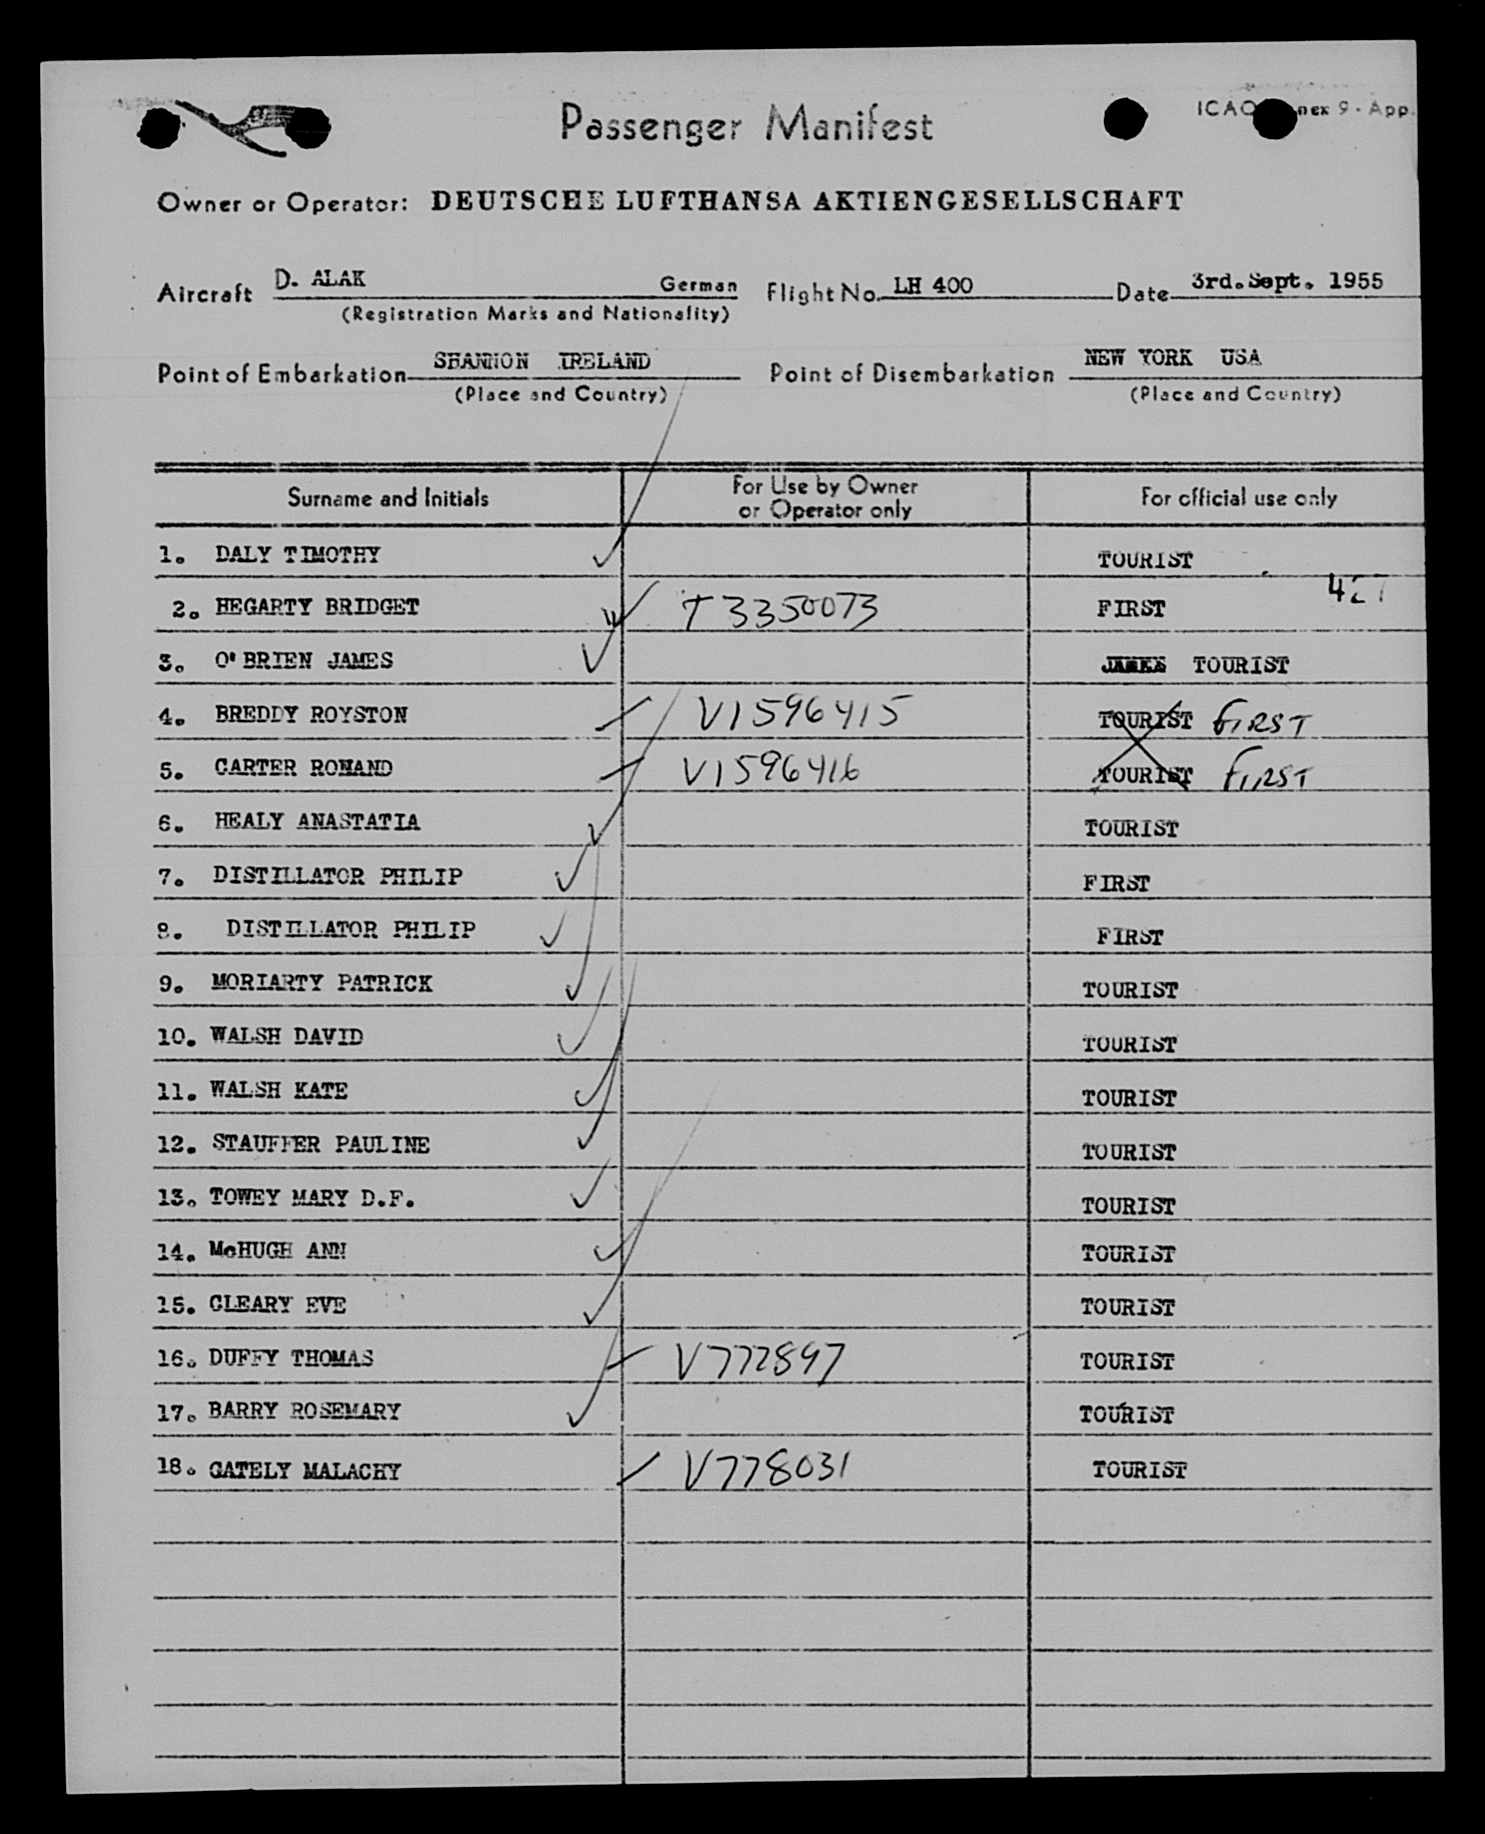 Passenger Manifest
ICAO Annex 9 - App.
Owner or Operator: DEUTSCHE LUFTHANSA AKTIENGESELLSCHAFT
Aircraft D. ALAK German Flight No. LH 400 Date 3rd. Sept. 1955
(Registration Marks and Nationality)
Point of Embarkation SHANNON IRELAND Point of Disembarkation NEW YORK USA
(Place and Country) (Place and Country)
Surname and Initials For Use by Owner or Operator only For official use only
1. DALY TIMOTHY TOURIST
2. HEGARTY BRIDGET T3350073 FIRST
3. O'BRIEN JAMES JAMES TOURIST
4. BREDDY ROYSTON V1596415 TOURIST FIRST
5. CARTER ROMAND V1596416 TOURIST FIRST
6. HEALY ANASTATIA TOURIST
7. DISTILLATOR PHILIP FIRST
8. DISTILLATOR PHILIP FIRST
9. MORIARTY PATRICK TOURIST
10. WALSH DAVID TOURIST
11. WALSH KATE TOURIST
12. STAUFFER PAULINE TOURIST
13. TOWEY MARY D.F. TOURIST
14. McHUGH ANN TOURIST
15. CLEARY EVE TOURIST
16. DUFFY THOMAS V772897 TOURIST
17. BARRY ROSEMARY TOURIST
18. GATELY MALACHY V778031 TOURIST